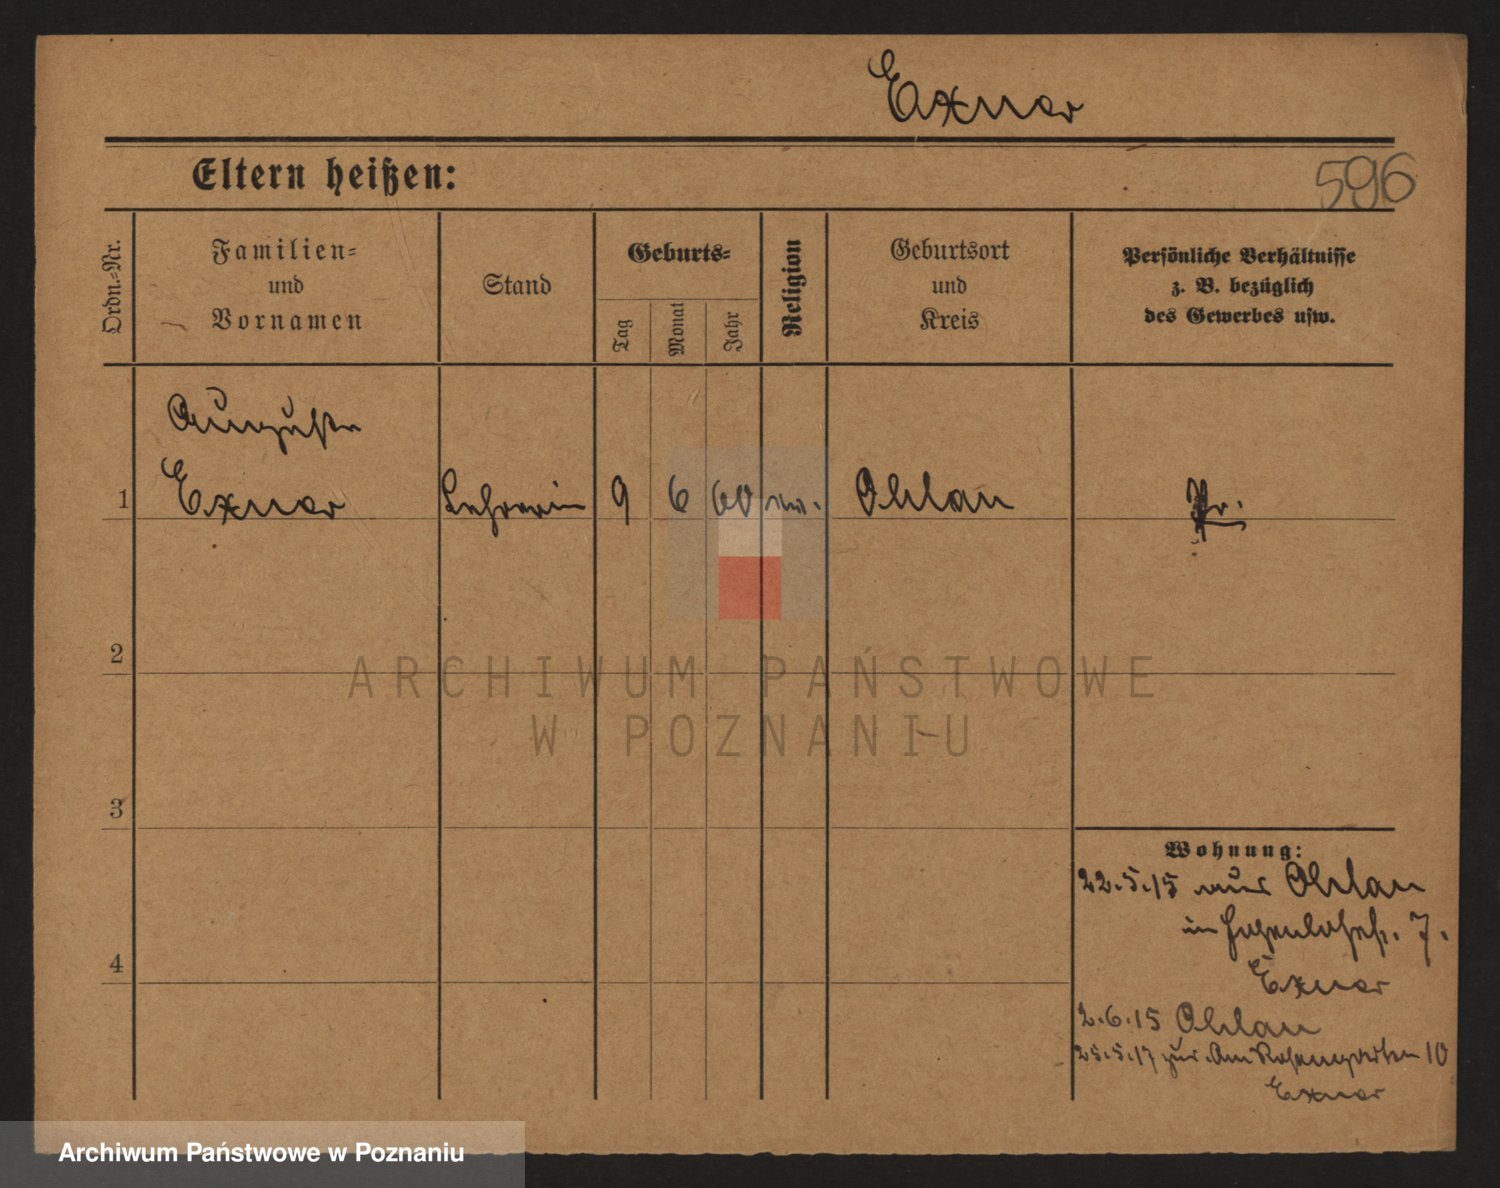 Exner
Eltern heißen:
596
Ordn.=Nr.
Familien=
und
Vornamen
Stand
Geburts=
Tag
Monat
Jahr
Religion
Geburtsort
und
Kreis
Persönliche Verhältnisse
z. B. bezüglich
des Gewerbes usw.
Auguste
1 Exner Lehrerin 9 6 60 ev. Ohlau Pr.
2
3
4
Wohnung:
22.5.15 aus Ohlau
in Hohenlohestr. 7.
Exner
2.6.15 Ohlau
25.5.17 zur. Am Rosengarten 10
Exner
ARCHIWUM PAŃSTWOWE
W POZNANIU
Archiwum Państwowe w Poznaniu